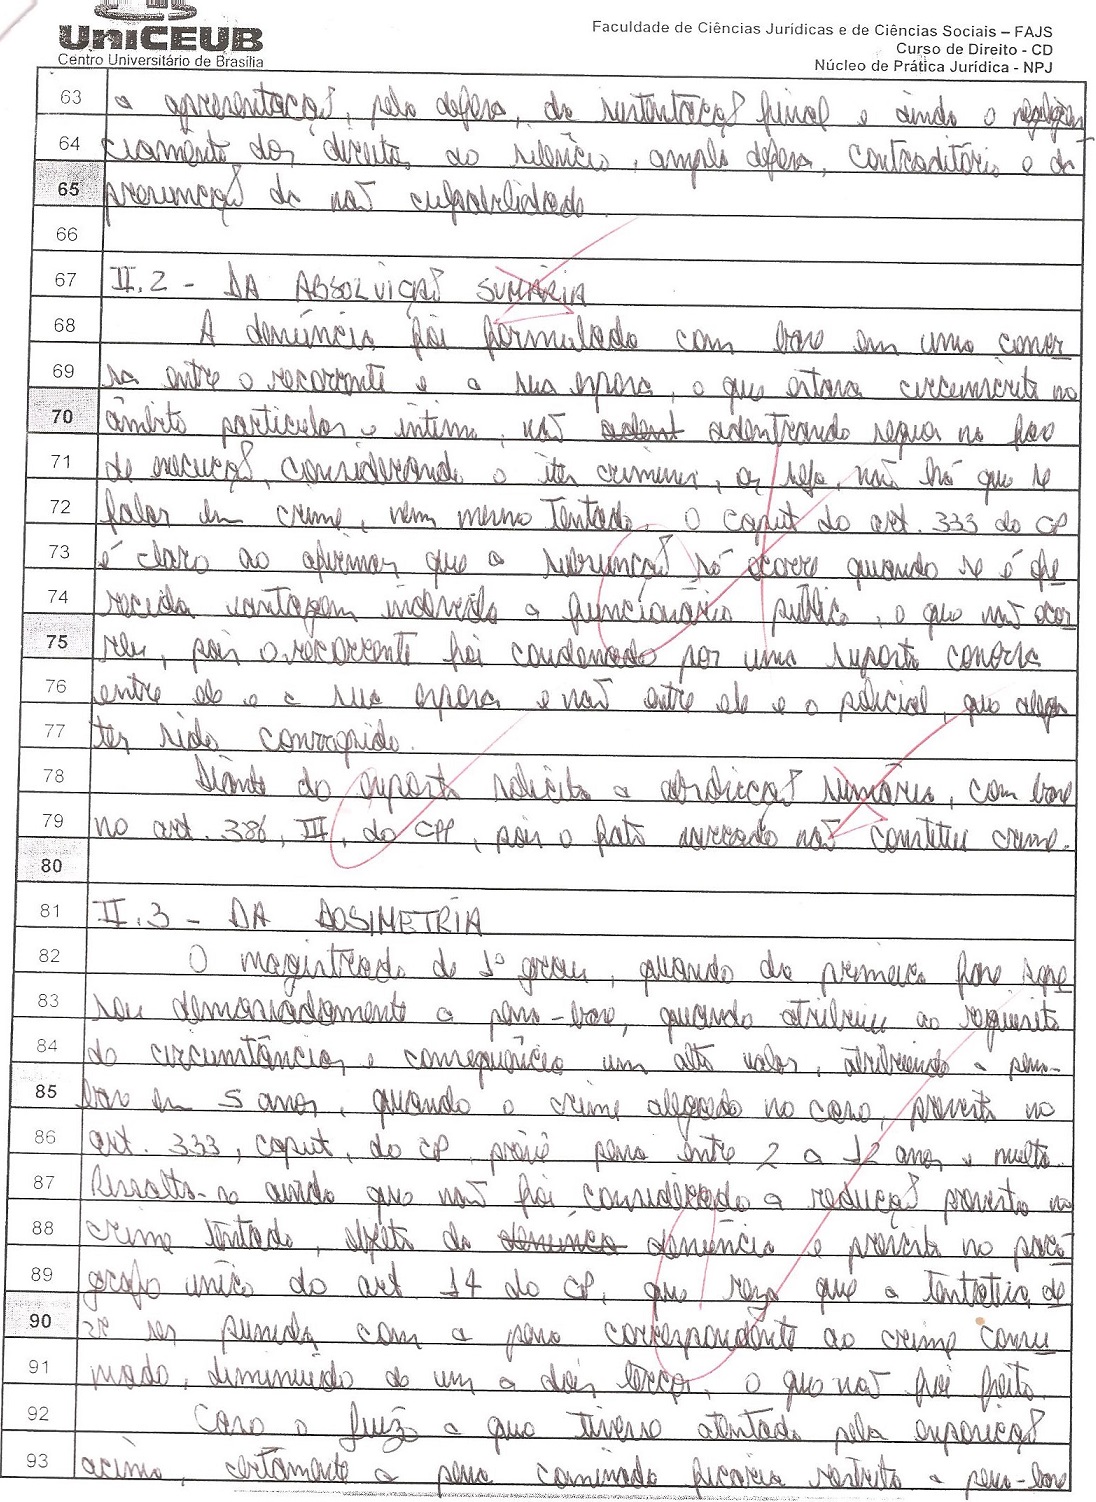 UniCEUB
Centro Universitário de Brasília
Faculdade de Ciências Jurídicas e de Ciências Sociais – FAJS
Curso de Direito - CD
Núcleo de Prática Jurídica - NPJ
63 a apresentação, pela defesa, da sustentação final e ainda o
64 ciamento dos direitos ao silêncio, ampla defesa, contraditório e da
65 presunção da não culpabilidade.
66
67 II.2 - DA ABSOLVIÇÃO SUMÁRIA
68 A denúncia foi formulada com base em uma conver
69 sa entre o recorrente e a sua esposa, o que estava circunscrito no
70 âmbito particular e íntimo, não adentrando sequer na fase
71 de execução, considerando o iter criminis, ou seja, não há que se
72 falar em crime, nem mesmo tentado. O caput do art. 333 do CP
73 é claro ao afirmar que a subsunção só ocorre quando se é ofe
74 recida vantagem indevida a funcionário público, o que não ocor
75 reu, pois o recorrente foi condenado por uma suposta conversa
76 entre ele e a sua esposa e não entre ele e o policial, que alega
77 ter sido corrompido.
78 Diante do exposto solicita a absolvição sumária, com base
79 no art. 386, III, do CPP, pois o fato narrado não constitui crime.
80
81 II.3 - DA DOSIMETRIA
82 O magistrado de 1º grau, quando da primeira fase,
83 demasiadamente a pena-base, quando atribuiu ao requisito
84 da circunstâncias e consequências um alto valor, atribuindo a pena-
85 base em 5 anos, quando o crime alegado no caso, previsto no
86 art. 333, caput, do CP prevê pena entre 2 a 12 anos e multa.
87 Ressalta-se ainda que não foi considerado a redução prevista no
88 crime tentado, objeto da denúncia denúncia e prevista no pará
89 grafo único do art 14 do CP, que reza que a tentativa de
90 ser punida com a pena correspondente ao crime consu
91 mado, diminuída de um a dois terços, o que não foi feito.
92 Caso o juízo a quo tivesse atentado pela exposição
93 acima, certamente a pena cominada ficaria restrita a pena-base